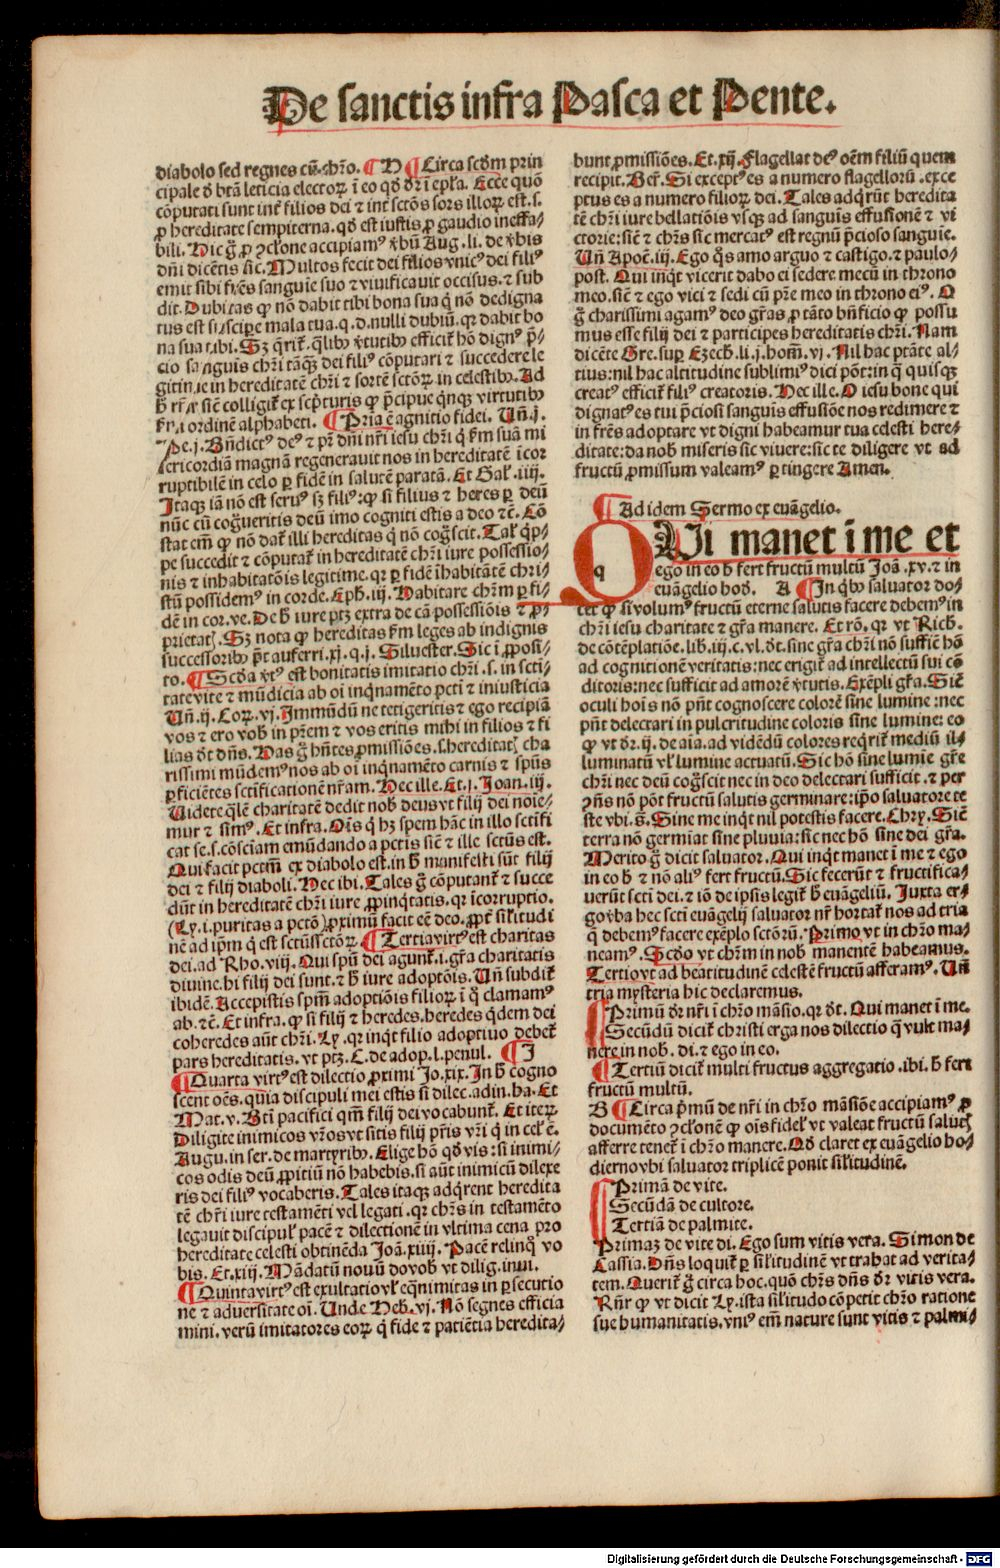 De sanctis infra Pasca et Pente.
diabolo sed regnes cū chr̄o. H Circa scd̄m prin
cipale ꝺ btā leticia electoꝝ ī eo qd̓ dr̄ ī epl̓a. Ecce quō
cōputati sunt int̓ filios dei ⁊ int̓ sctōs sors illoꝝ est. s.
ꝑ hereditate sempiterna. qd̓ est iustis ꝑ gaudio ineffa⸗
bili. Hic g̊ ꝓ ꝯclone accipiamꝰ v̓bū Aug. li. de v̓bis
dn̄i dicētis sic. Multos fecit dei filios vnicꝰ dei filiꝰ
emit sibi fr̄es sanguīe suo ⁊ viuificauit occisus. ⁊ sub
dit. Dubitas ꝙ nō dabit tibi bona sua q̇ nō dedigna
tus est suscipe mala tua. q. d. nulli dubiū. qꝛ dabit bo
na sua tibi. Sꝫ q̄rit̄. q̄libꝰ v̓tutibꝰ efficit̄ hō dignꝰ p̄⸗
cio sanguis chr̄i tāꝙ dei filiꝰ cōputari ⁊ succedere le
gitime in hereditatē chr̄i ⁊ sortē sctōꝝ in celestibꝰ. Ad
siē colligit̄ ex scp̄turis ꝙ p̄cipue q̇nꝙ virtutibꝰ
ordinē alphabeti. Pria ē agnitio fidei. Vn̄. j.
Pe. j. Bn̄dictꝰ deꝰ ⁊ pr̄ dn̄i nr̄i iesu chr̄i q̇ ẜm suā mi
sericordiā magnā regenerauit nos in hereditatē īcor
ruptibilē in celo ꝑ fidē in salutē paratā. Et Gal̓. iiij.
Itaꝙ iā nō est seruꝰ sꝫ filiꝰ: ꝙ si filius ⁊ heres ꝑ deū
nūc cū cog̊ueritis deū imo cogniti estis a deo ⁊c̄. Cō
stat em̄ ꝙ nō dat̄ illi hereditas q̇ nō cog̊scit. Tal̓ q̇p⸗
pe succedit ⁊ cōputat̄ in hereditatē chr̄i iure possessio⸗
nis ⁊ inhabitatōis legitime. qꝛ ꝑ fidē īhabitātē chri⸗
stū possidemꝰ in corde. Eph̓. iij. Habitare chr̄m ꝑ fi⸗
dē in cor. ve. De h̓ iure ptꝫ extra de cā possessiōis ⁊ ꝓ⸗
prietat̓. Sꝫ nota ꝙ hereditas ẜm leges ab indignis
successoribꝰ p̄t auferri. xj. q. j. Siluester. Sic ī ꝓposi⸗
to. Scd̓a v̓tꝰ est bonitatis imitatio chr̄i. s. in scti⸗
tate vite ⁊ mūdicia ab oī inq̇namēto pcti ⁊ iniusticia
Vn̄. ij. Coꝝ. vj. Immūdū ne tetigeritis ⁊ ego recipiā
vos ⁊ ero vob̓ in pr̄em ⁊ vos eritis mihi in filios ⁊ fi
lias dt̓ dn̄s. Has g̊ hn̄tes ꝓmissiōes. s. hereditat̓ cha
rissimi mūdemꝰ nos ab oī inq̇namēto carnis ⁊ spūs
ꝑficiētes sctificationē nr̄am. Hec ille. Et. j. Joan. iij.
Videte q̄lē charitatē dedit nob̓ deus vt filij dei noīe⸗
mur ⁊ simꝰ. Et infra. Oīs q̇ hꝫ spem hāc in illo sctifi
cat se. s. cōsciam emūdando a pctis siē ⁊ ille sctūs est.
Qui facit pctm̄ ex diabolo est. in h̓ manifesti sūt filij
dei ⁊ filij diaboli. Hec ibi. Tales g̊ cōputant̄ ⁊ succe
dūt in hereditatē chr̄i iure ꝓpinq̇tatis. qꝛ īcorruptio.
(Ly. i. puritas a pctō) ꝓximū facit eē deo. ꝓpt̓ sil̓itudi
nē ad ip̄m q̇ est sctūs sctōꝝ. Tertia virtꝰ est charitas
dei. ad Rho. viij. Qui spū dei agunt̄. i. gr̄a charitatis
diuine. hi filij dei sunt. ⁊ h̓ iure adoptōis. Vn̄ subdit̄
ibidē. Accepistis spm̄ adoptiōis filioꝝ ī q̇ clamamꝰ
ab. ⁊c̄. Et infra. ꝙ si filij ⁊ heredes. heredes q̇dem dei
coheredes aūt chr̄i. Ly. qꝛ inq̇t filio adoptiuo debet̄
pars hereditatis. vt ptꝫ. C. de adop. l. penul. I
Quarta virtꝰ est dilectio ꝓximi Jo. xix. In h̓ cogno
scent oēs. quia discipuli mei estis si dilec. ad in. ha. Et
Mat. v. Bt̄i pacifici qm̄ filij dei vocabunt̄. Et iteꝝ.
Diligite inimicos vr̄os vt sitis filij pr̄is vr̄i q̇ in cel̓ ē.
Augu. in ser. de martyribꝰ. Elige hō qd̓ vis: si inimi⸗
cos odis deū ꝓpitiū nō habebis. si aūt inimicū dilexe
ris dei filiꝰ vocaberis. Tales itaꝙ adq̇rent heredita
tē chr̄i iure testamēti vel legati. qꝛ chr̄s in testamēto
legauit discipul̓ pacē ⁊ dilectionē in vltima cena pro
hereditate celesti obtinēda Joā. xiiij. Pacē relinq̇ vo
bis. Et. xiij. Mādatū nouū do vob̓ vt dilig. inui.
Quinta virtꝰ est exultatio vl̓ eq̄nimitas in ꝑsecutio
ne ⁊ aduersitate oī. Unde Heb. vj. Nō segnes efficia
mini. verū imitatores eoꝝ q̇ fide ⁊ patiētia heredita⸗
bunt ꝓmissiōes. Et. xij. Flagellat deꝰ oēm filiū quem
recipit. Ber̄. Si exceptꝰ es a numero flagelloꝝ. exce
ptus es a numero filioꝝ dei. Tales adq̇rūt heredita
tē chr̄i iure bellatiōis vsꝙ ad sanguis effusionē ⁊ vi
ctorie: siē ⁊ chr̄s sic mercatꝰ est regnū p̄cioso sanguīe.
Vn̄ Apoc̄. iij. Ego q̇s amo arguo ⁊ castigo. ⁊ paulo⸗
post. Qui inq̇t vicerit dabo ei sedere mecū in throno
meo. siē ⁊ ego vici ⁊ sedi cū pr̄e meo in throno eiꝰ. O
g̊ charissimi agamꝰ deo gr̄as ꝓ tāto bn̄ficio ꝙ possu
mus esse filij dei ⁊ participes hereditatis chr̄i. Nam
dicēte Gre. suꝑ Ezech. li. j. hom̄. vj. Nil hac ptāte al⸗
tius: nil hac altitudine sublimiꝰ dici pōt: in q̇ quisꝙ
creatꝰ efficit̄ filiꝰ creatoris. Hec ille. O iesu bone qui
dignatꝰ es tui p̄ciosi sanguis effusiōe nos redimere ⁊
in fr̄es adoptare vt digni habeamur tua celesti here⸗
ditate: da nob̓ miseris sic viuere: sic te diligere vt ad
fructū ꝓmissum valeamꝰ ꝑtingere Amen.
Ad idem Sermo ex euāgelio.
QUi manet ī me et
ego in eo h̓ fert fructū multū Joā. xv. ⁊ in
euāgelio hod̓. A In q̇bꝰ saluator do⸗
cet ꝙ si volumꝰ fructū eterne salutis facere debemꝰ in
chr̄i iesu charitate ⁊ gr̄a manere. Et rō. qꝛ vt Rich.
de cōtēplatiōe. lib. iij. c. vl. dt̓. sine gr̄a chr̄i nō suffiē hō
ad cognitionē veritatis: nec erigit̄ ad intellectū sui cō
ditoris: nec sufficit ad amorē v̓tutis. Exēpli gr̄a. Siē
oculi hoīs nō pn̄t cognoscere colorē sine lumine: nec
pn̄t delectari in pulcritudine coloris sine lumine: eo
ꝙ vt dr̄. ij. de aīa. ad vidēdū colores req̇rit̄ mediū il⸗
luminatū vl̓ lumine actuatū. Sic hō sine lumīe gr̄e
chr̄i nec deū cog̊scit nec in deo delectari sufficit. ⁊ per
ꝯn̄s nō pōt fructū salutis germinare: ip̄o saluatore te
ste vbi. s̄. Sine me inq̇t nil potestis facere. Chry. Siē
terra nō germiat sine pluuia: sic nec hō sine dei gr̄a.
Merito g̊ dicit saluator. Qui inq̇t manet ī me ⁊ ego
in eo h̓ ⁊ nō aliꝰ fert fructū. Sic fecerūt ⁊ fructifica⸗
uerūt scti dei. ⁊ iō de ipsis legit̄ h̓ euāgeliū. Juxta er⸗
go v̓ba hec scti euāgelij saluator nr̄ hortat̄ nos ad tria
q̄ debemꝰ facere exēplo sctōꝝ. Primo vt in chr̄o ma⸗
neamꝰ. Scd̓o vt chr̄m in nob̓ manentē habeamus.
Tertio vt ad beatitudinē celestē fructū afferamꝰ. Vn̄
tria mysteria hic declaremus.
Primū dr̄ nr̄i ī chr̄o māsio. qꝛ dt̓. Qui manet ī me.
Secūdū dicit̄ christi erga nos dilectio q̇ vult ma⸗
nere in nob̓. di. ⁊ ego in eo.
Tertiū dicit̄ multi fructus aggregatio. ibi. h̓ fert
fructū multū.
B Circa p̄mū de nr̄i in chr̄o māsiōe accipiamꝰ ꝓ
documēto ꝯclonē ꝙ oīs fidel̓ vt valeat fructū salut̓
afferre tenet̄ ī chr̄o manere. Qd̓ claret ex euāgelio ho⸗
dierno vbi saluator triplicē ponit sil̓itudinē.
Primā de vite.
Secūdā de cultore.
Tertiā de palmite.
Primaꝫ de vite di. Ego sum vitis vera. Simon de
Cassia. Dn̄s loquit̄ ꝑ sil̓itudinē vt trahat ad verita⸗
tem. Querit̄ g̊ circa hoc. quō chr̄s dn̄s dr̄ vitis vera.
Rn̄r ꝙ vt dicit Ly. ista sil̓itudo cōpetit chr̄o ratione
sue humanitatis. vniꝰ em̄ nature sunt vitis ⁊ palmi⸗
Digitalisierung gefördert durch die Deutsche Forschungsgemeinschaft - DFG